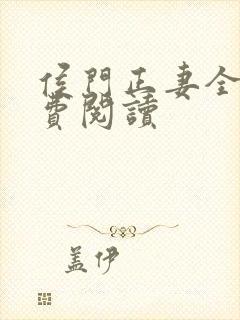 侯門正妻全
費閱讀
盖伊